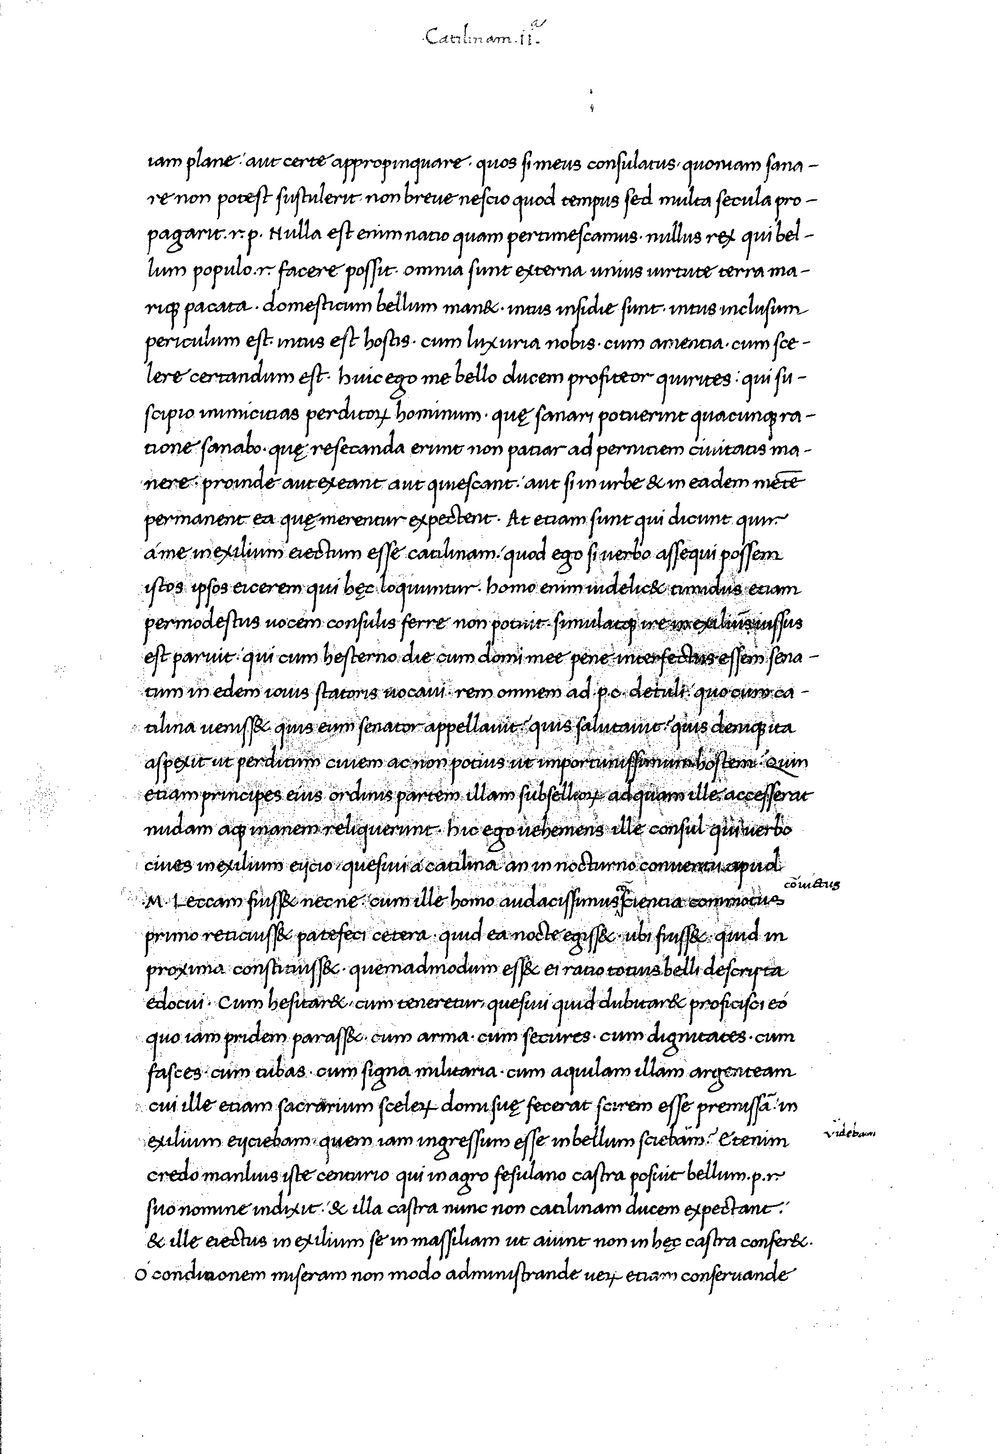 .Catilinam.iiª.
iam plane: aut certe appropinquare. quos si meus consulatus. quoniam sana-
re non potest sustulerit. non breve nescio quod tempus sed multa secula pro-
pagarit. r. p. Nulla est enim natio quam pertimescamus. nullus rex qui bel-
lum populo. r. facere possit. omnia sunt externa unius uirtute terra ma-
riqȝ pacata. domesticum bellum man&. intus insidie sunt. intus inclusum
periculum est. intus est hostis. cum luxuria nobis. cum amentia. cum sce-
lere certandum est. huic ego me bello ducem profiteor quirites: qui su-
scipio inimicitias perditoꝝ hominum. quę sanari potuerint quacunqȝ ra-
tione sanabo. quę resecanda erunt non patiar ad perniciem ciuitatis ma-
nere. proinde aut exeant aut quiescant. aut si in urbe & in eadem mẽte
permanent ea quę merentur expectent. At etiam sunt qui dicunt quir.
a me in exilium eiectum esse catilinam. quod ego si uerbo assequi possem
istos ipsos eicerem qui hęc loquuntur. homo enim uidelic& timidus etiam
permodestus uocem consulis ferre non potuit. simulatqȝ ire in exiliũ iussus
est paruit. qui cum hesterno die cum domi mee pene interfectus essem sena-
tum in edem iouis statoris uocaui. rem omnem ad .p.c. detuli. quo cum ca-
tilina ueniss&. quis eum senator appellauit? quis salutauit? quis deniqȝ ita
aspexit ut perditum ciuem ac non potius ut importunissimum hostem? Quin
etiam principes eius ordinis partem illam subsellioꝝ ad quam ille accesserat
nudam atqȝ inanem reliquerunt. hic ego uehemens ille consul qui uerbo
ciues in exilium eijcio quesiui a catilina an in nocturno conuentu apud
cõuictus
M. Leccam fuiss& nec ne. cum ille homo audacissimus ꝯscientia commotus
primo reticuiss& patefeci cetera. quid ea nocte egiss&. ubi fuiss&. quid in
proxima constituiss&. quemadmodum ess& ei ratio totius belli descripta
edocui. Cum hesitar&. cum teneretur. quesiui quid dubitar& proficisci eo
quo iam pridem parass&. cum arma. cum secures. cum dignitates. cum
fasces. cum tubas. cum signa militaria. cum aquilam illam argenteam
cui ille etiam sacrarium sceleꝝ domi suę fecerat scirem esse premissã. in
exilium eijciebam. quem iam ingressum esse in bellum sciebam? Etenim
videbam
credo manlius iste centurio qui in agro fesulano castra posuit bellum .p.r.
suo nomine indixit. & illa castra nunc non catilinam ducem expectant.
& ille eiectus in exilium se in massiliam ut aiunt non in hęc castra confer&.
O conditionem miseram non modo administrande ueꝝ etiam conseruande